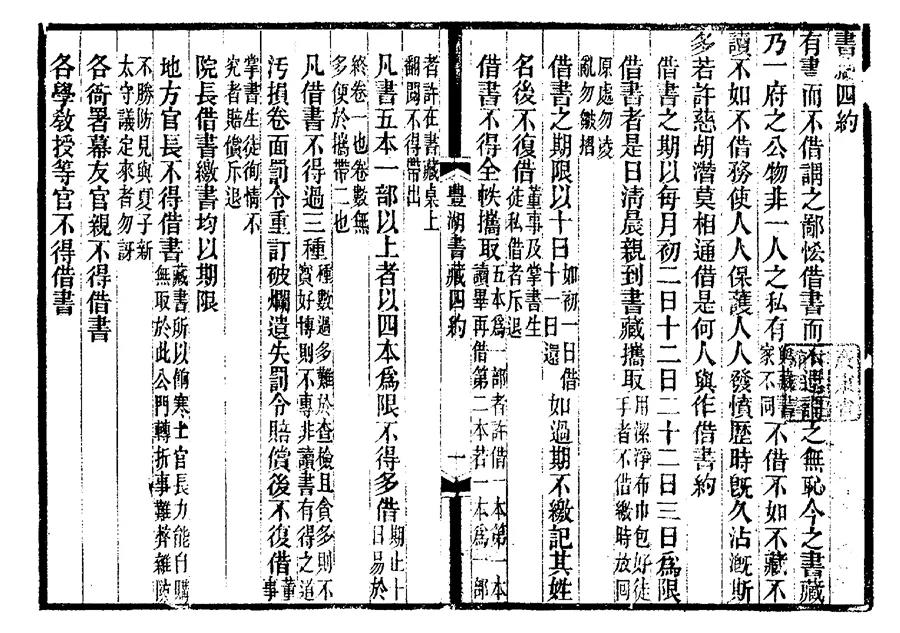 書藏四約
有書而不借謂之鄙悋借書而不還謂之無恥今之書藏
乃一府之公物非一人之私有與藏書家不同不借不如不藏不
讀不如不借務使人人保護人人發憤歷時既久沾漑斯
多若許慈胡潛莫相通借是何人與作借書約
借書之期以每月初二日十二日二十二日三日爲限
借書者是日淸晨親到書藏攜取用潔淨布巾包好徒手者不借繳時放囘
原處勿凌亂勿皺摺
借書之期限以十日如初一日借十一日還如過期不繳記其姓
名後不復借董事及掌書生徒私借者斥退
借書不得全帙攜取五本爲一部者許借一本第一本讀畢再借第二本若一本爲一部
豐湖書藏四約
一
者許在書藏桌上翻閱不得帶出
凡書五本一部以上者以四本爲限不得多借期止十日易於
終卷一也卷數無多便於攜帶二也
凡借書不得過三種種數過多難於查檢且貪多則不實好博則不專非讀書有得之道
汚損卷面罰令重訂破爛遺失罰令賠償後不復借董事
掌書生徒徇情不究者賠償斥退
院長借書繳書均以期限
地方官長不得借書藏書所以餉寒士官長力能自購無取於此公門轉折事難擠雜防
不勝防見與夏子新太守議定來者勿訝
各衙署幕友官親不得借書
各學敎授等官不得借書